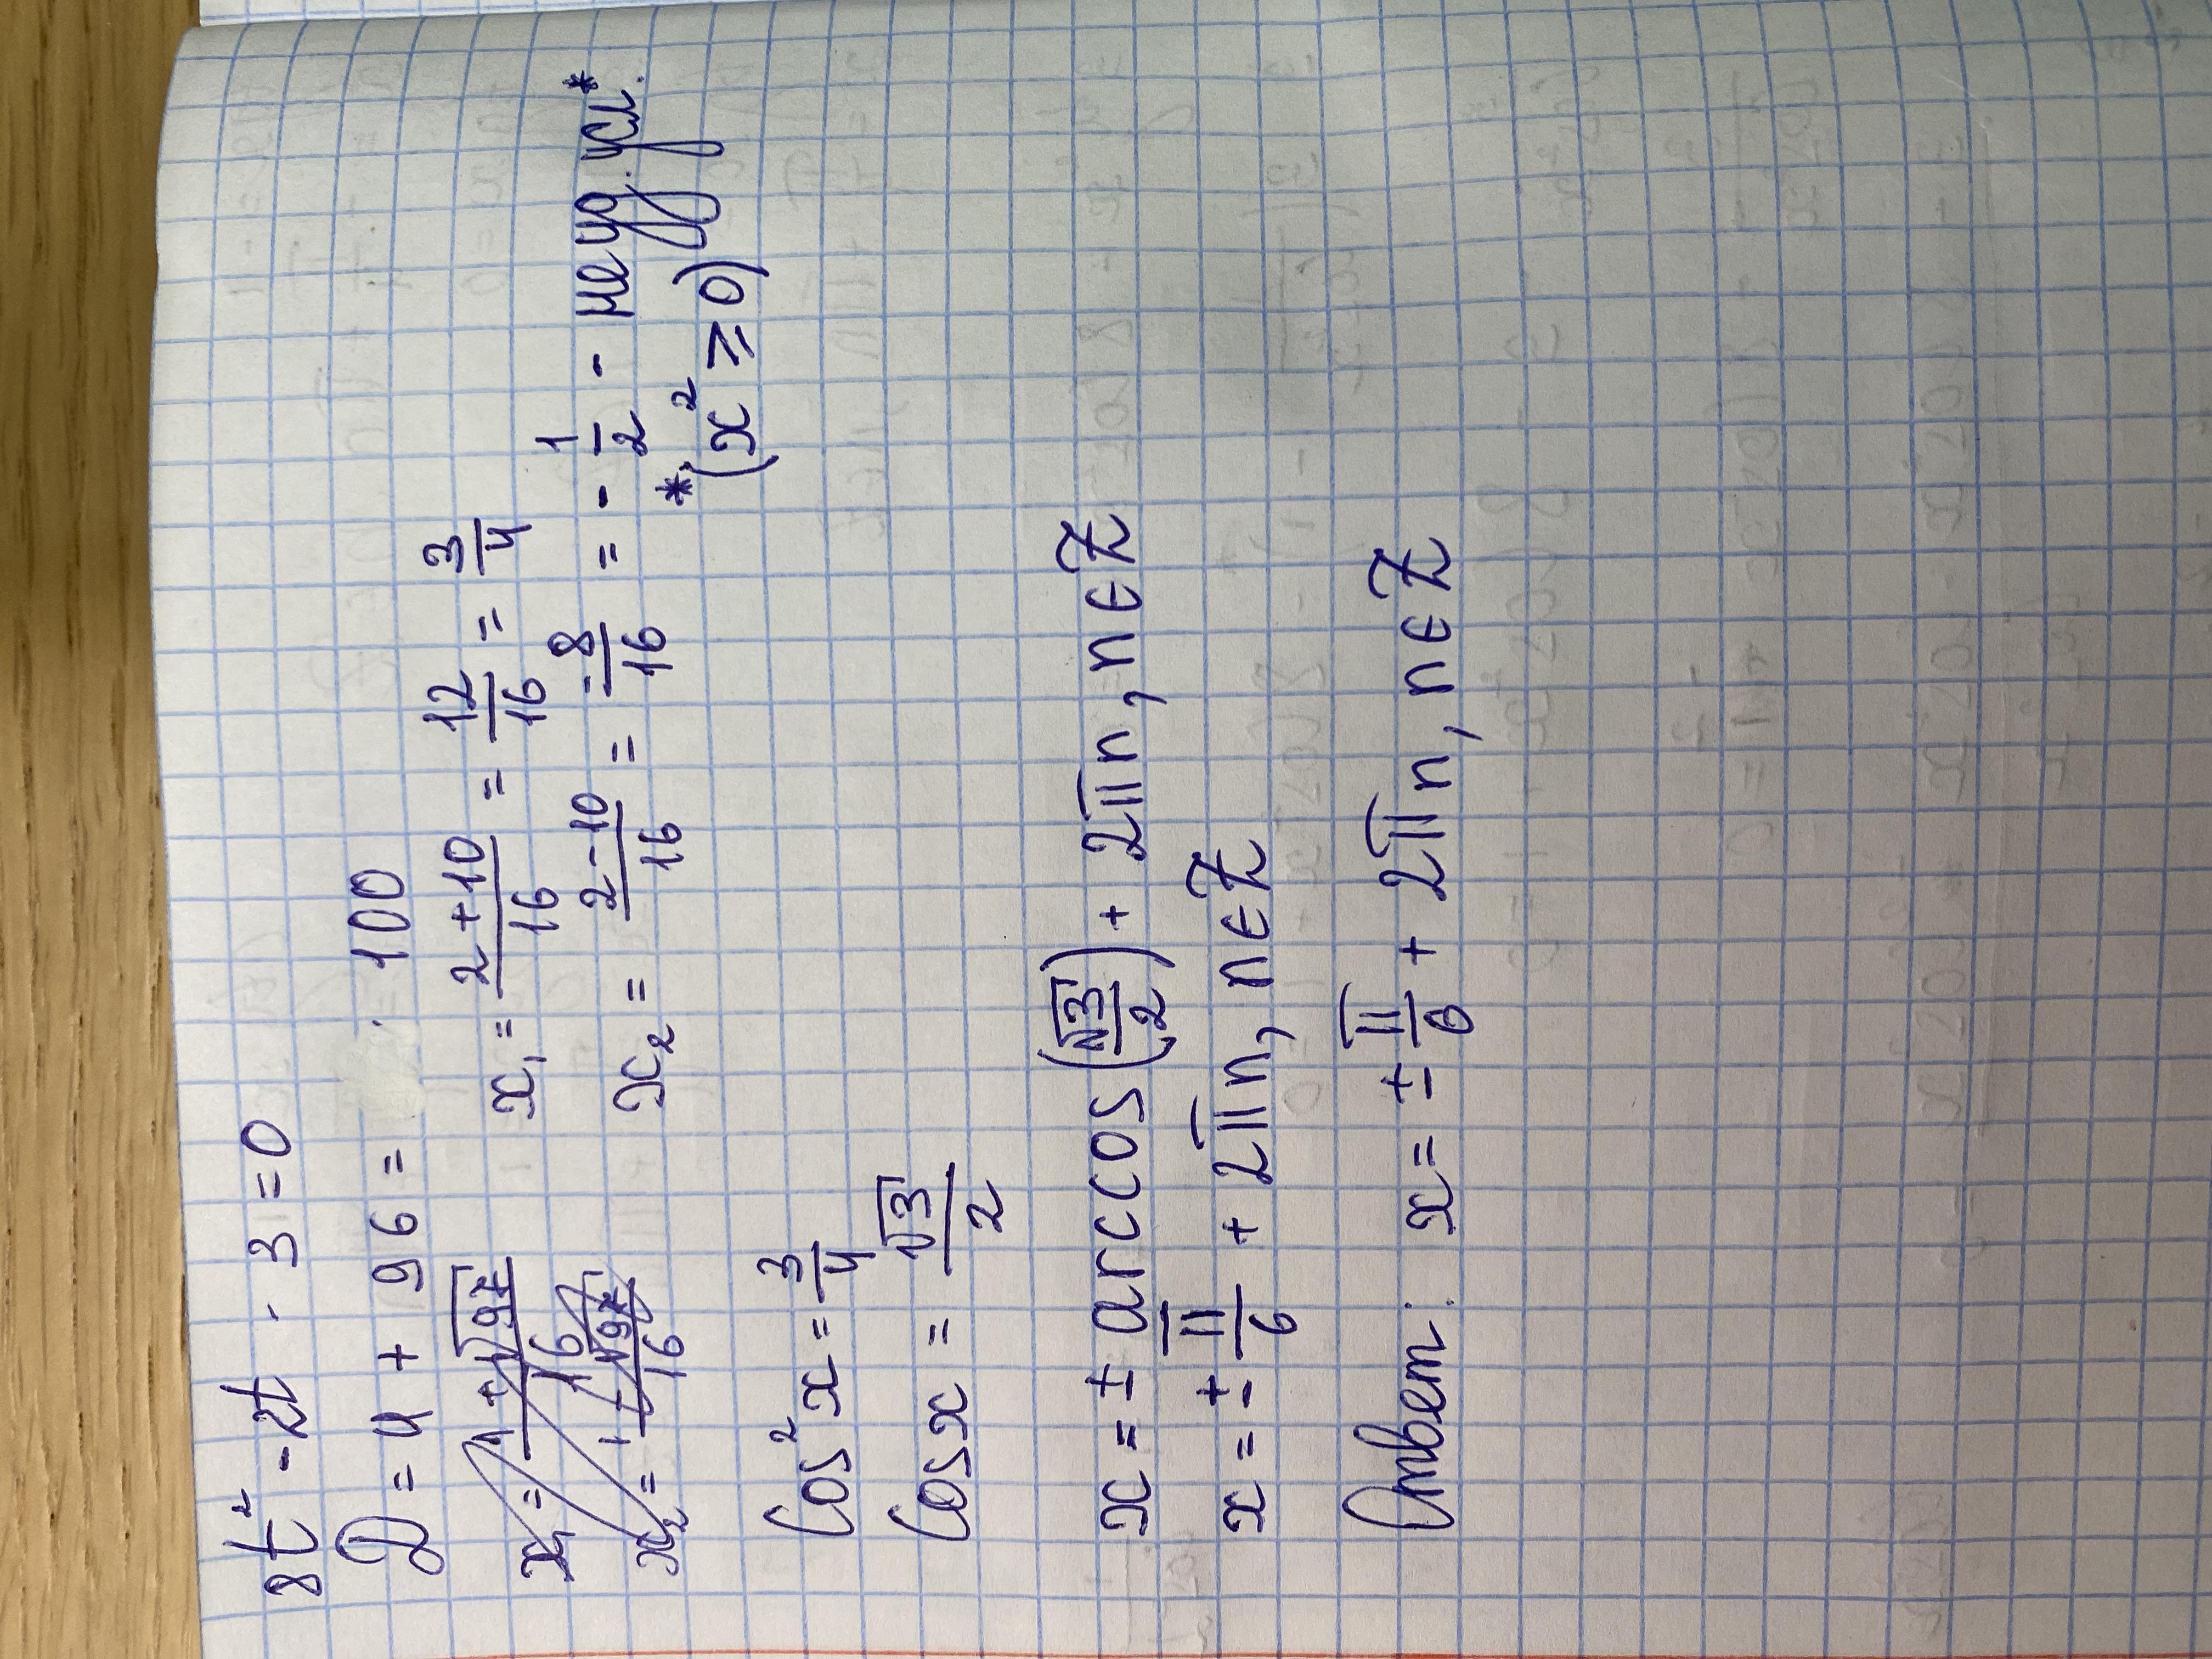 8t² - 2t - 3 = 0
D = 4 + 96 = 100
x₁ = (2+10)/16 = 12/16 = 3/4
x₂ = (2-10)/16 = -8/16 = -1/2 - не уд. усл.*
*(x² ≥ 0)
Cos²x = 3/4
Cosx = √3/2
x = ± arccos(√3/2) + 2πn, n∈Z
x = ± π/6 + 2πn, n∈Z
Ответ: x = ± π/6 + 2πn, n∈Z